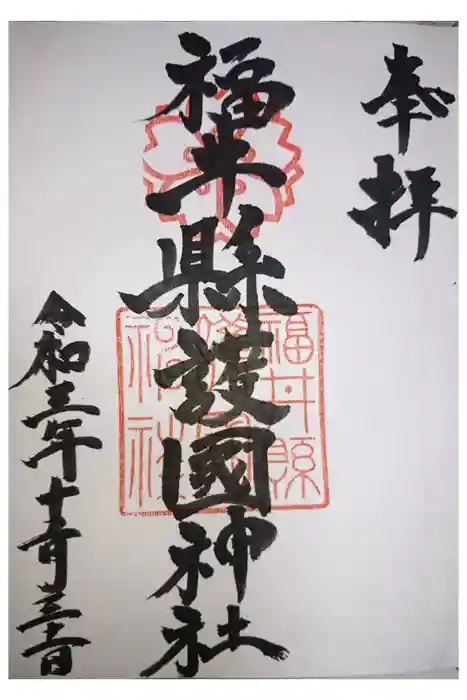 奉拝
福井縣護國神社
令和三年十一月三十日
福井縣護國神社